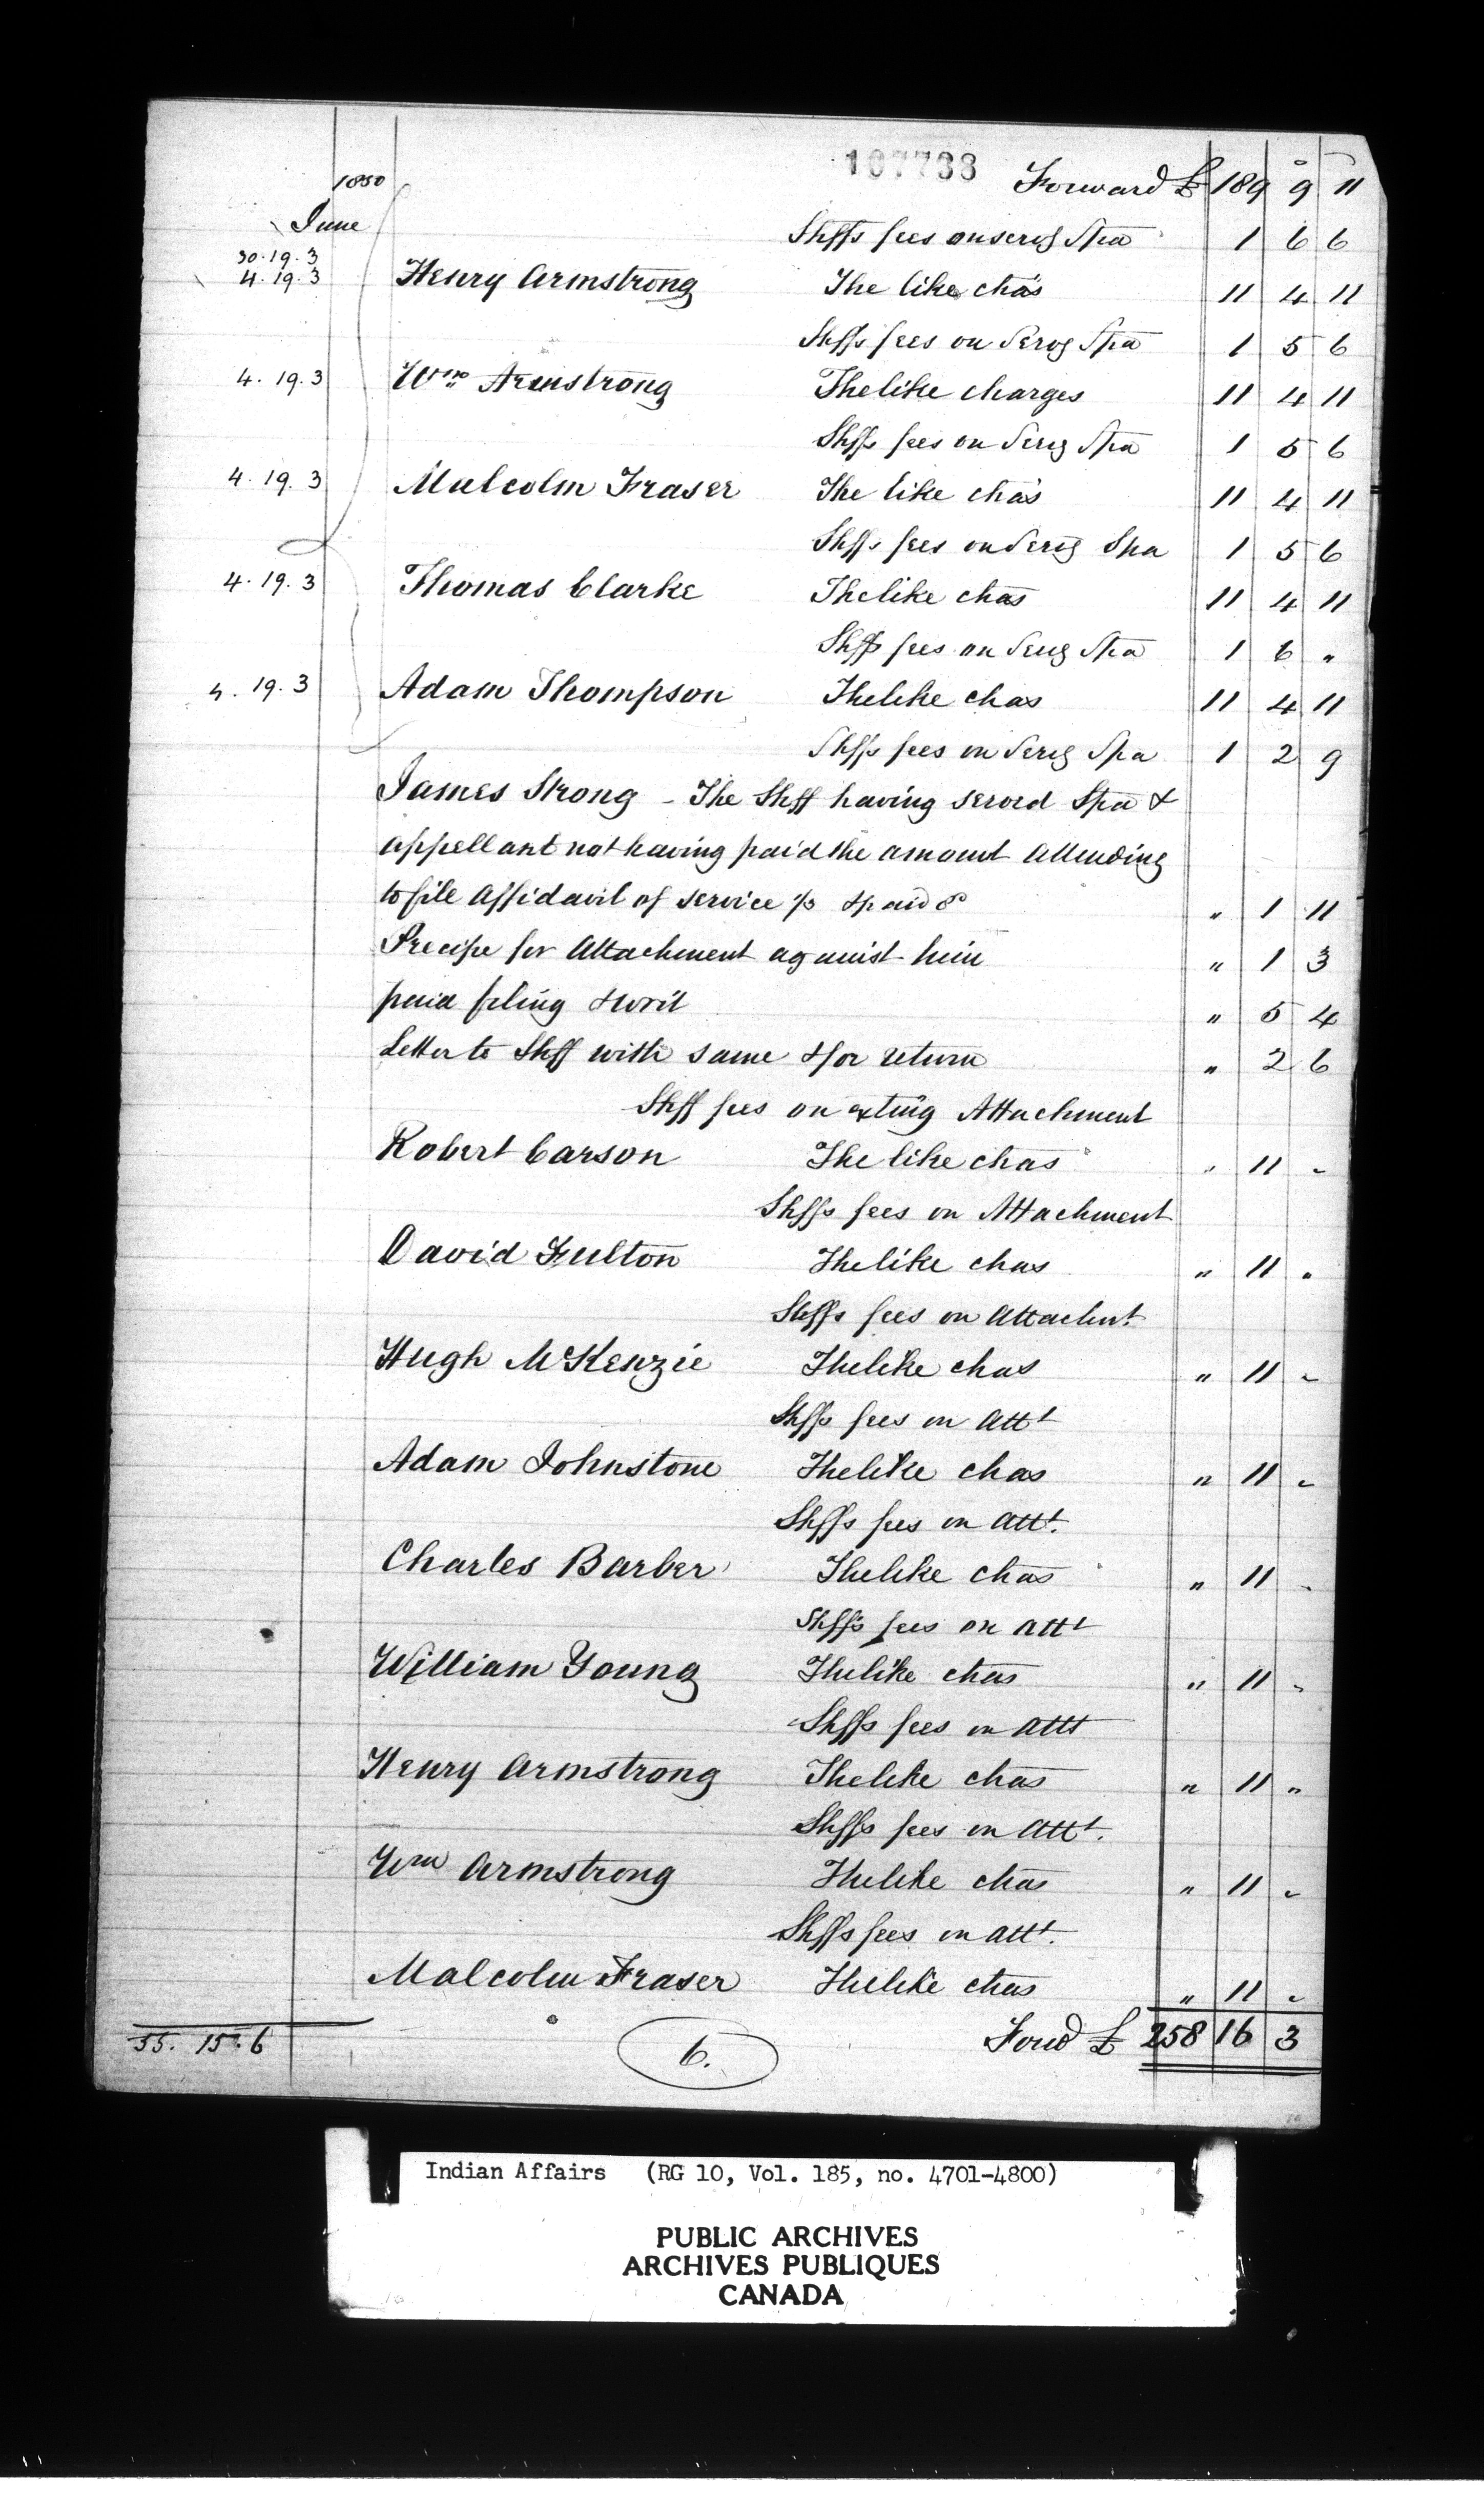 107733
1850
Forward £ 189 9 11
June
Shffs fees on servg Spa 1 6 6
30.19.3
4.19.3 Henry Armstrong The like chas 11 4 11
Shffs fees on Servg Spa 1 5 6
4.19.3 Wm Armstrong The like charges 11 4 11
Shffs fees on Servg Spa 1 5 6
4.19.3 Malcolm Fraser The like chas 11 4 11
Shffs fees on Servg Spa 1 5 6
4.19.3 Thomas Clarke The like chas 11 4 11
Shffs fees on Servg Spa 1 6 "
4.19.3 Adam Thompson The like chas 11 4 11
Shffs fees on Servg Spa 1 2 9
James Strong - The Shff having served Spa &
appellant not having paid the amount Attending
to file Affidavit of service & paid " 1 11
Precipe for Attachment against him " 1 3
paid filing & writ " 5 4
Letter to Shff with same & for return " 2 6
Shff fees on exting Attachment
Robert Carson The like chas " 11 "
Shffs fees on Attachment
David Fulton The like chas " 11 "
Shffs fees on Attachmt
Hugh McKenzie The like chas " 11 "
Shffs fees on Attt
Adam Johnstone The like chas " 11 "
Shffs fees on Attt.
Charles Barber The like chas " 11 "
Shffs fees on Attt
William Young The like chas " 11 "
Shffs fees on Attt
Henry Armstrong The like chas " 11 "
Shffs fees on Attt.
Wm Armstrong The like chas " 11 "
Shffs fees on Attt.
Malcolm Fraser The like chas " 11 "
55.15.6 6. Forwd £ 258 16 3
Indian Affairs (RG 10, Vol. 185, no. 4701-4800)
PUBLIC ARCHIVES
ARCHIVES PUBLIQUES
CANADA